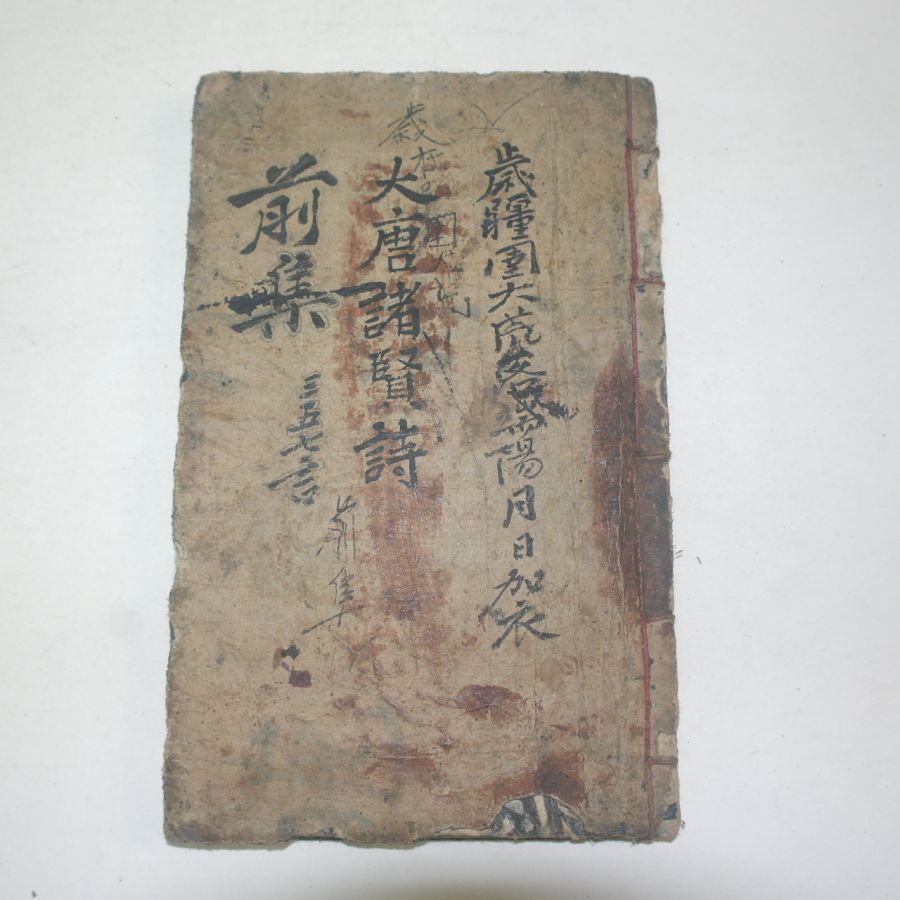 歲疆圉大荒落陽月日加衣
歲在
大唐諸賢詩
前集
三五七言
前集